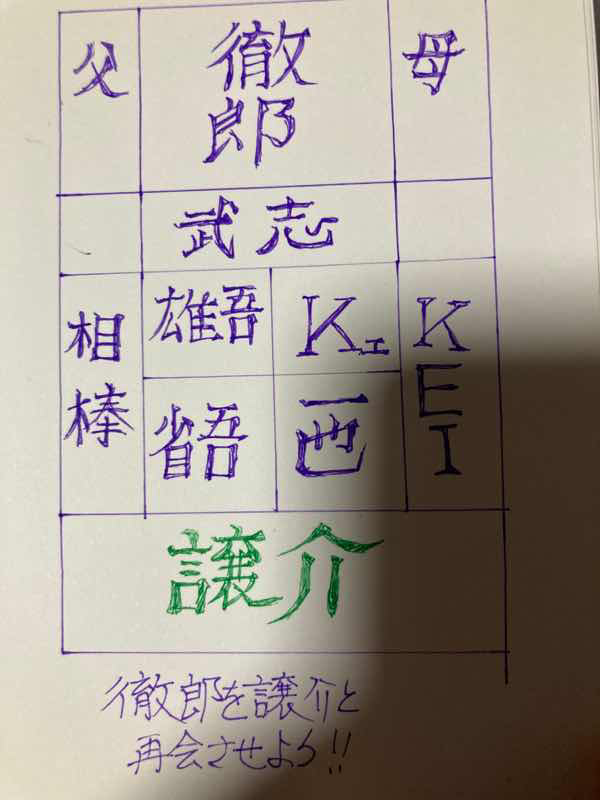 父
徹郎
母
武志
相棒
雄吾
Kェ
KEI
省吾
一也
譲介
徹郎を譲介と
再会させよう!!